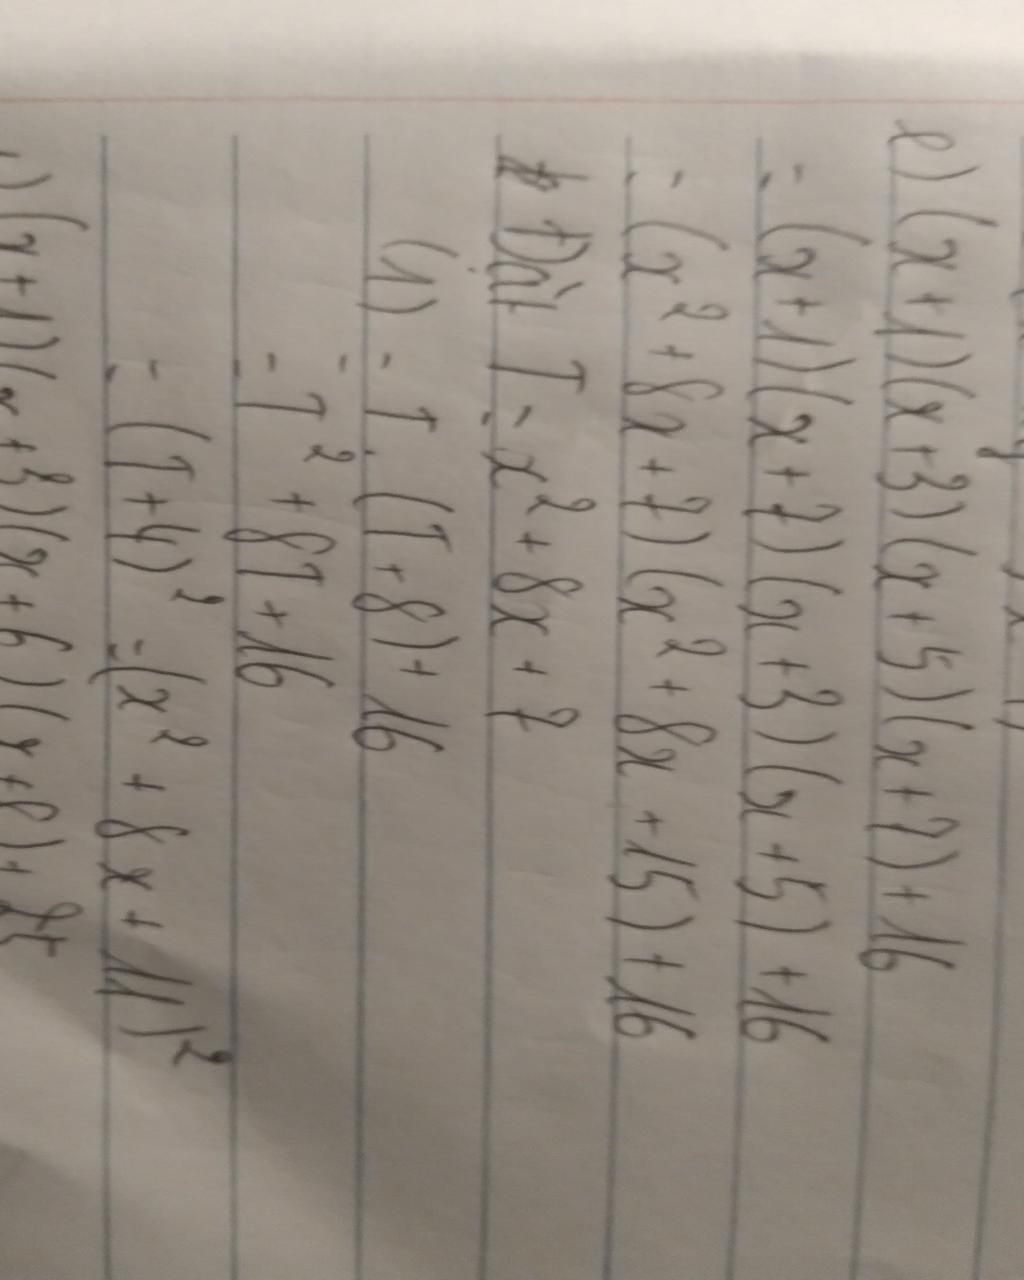 e) (x+1)(x+3)(x+5)(x+7)+16
= (x+1)(x+7)(x+3)(x+5)+16
= (x² + 8x + 7)(x² + 8x + 15) + 16
Đặt T = x² + 8x + 7
(1) = T. (T+8) + 16
= T² + 8T + 16
= (T+4)² = (x² + 8x + 11)²
(x+1)(x+3)(x+6)(x+8)+